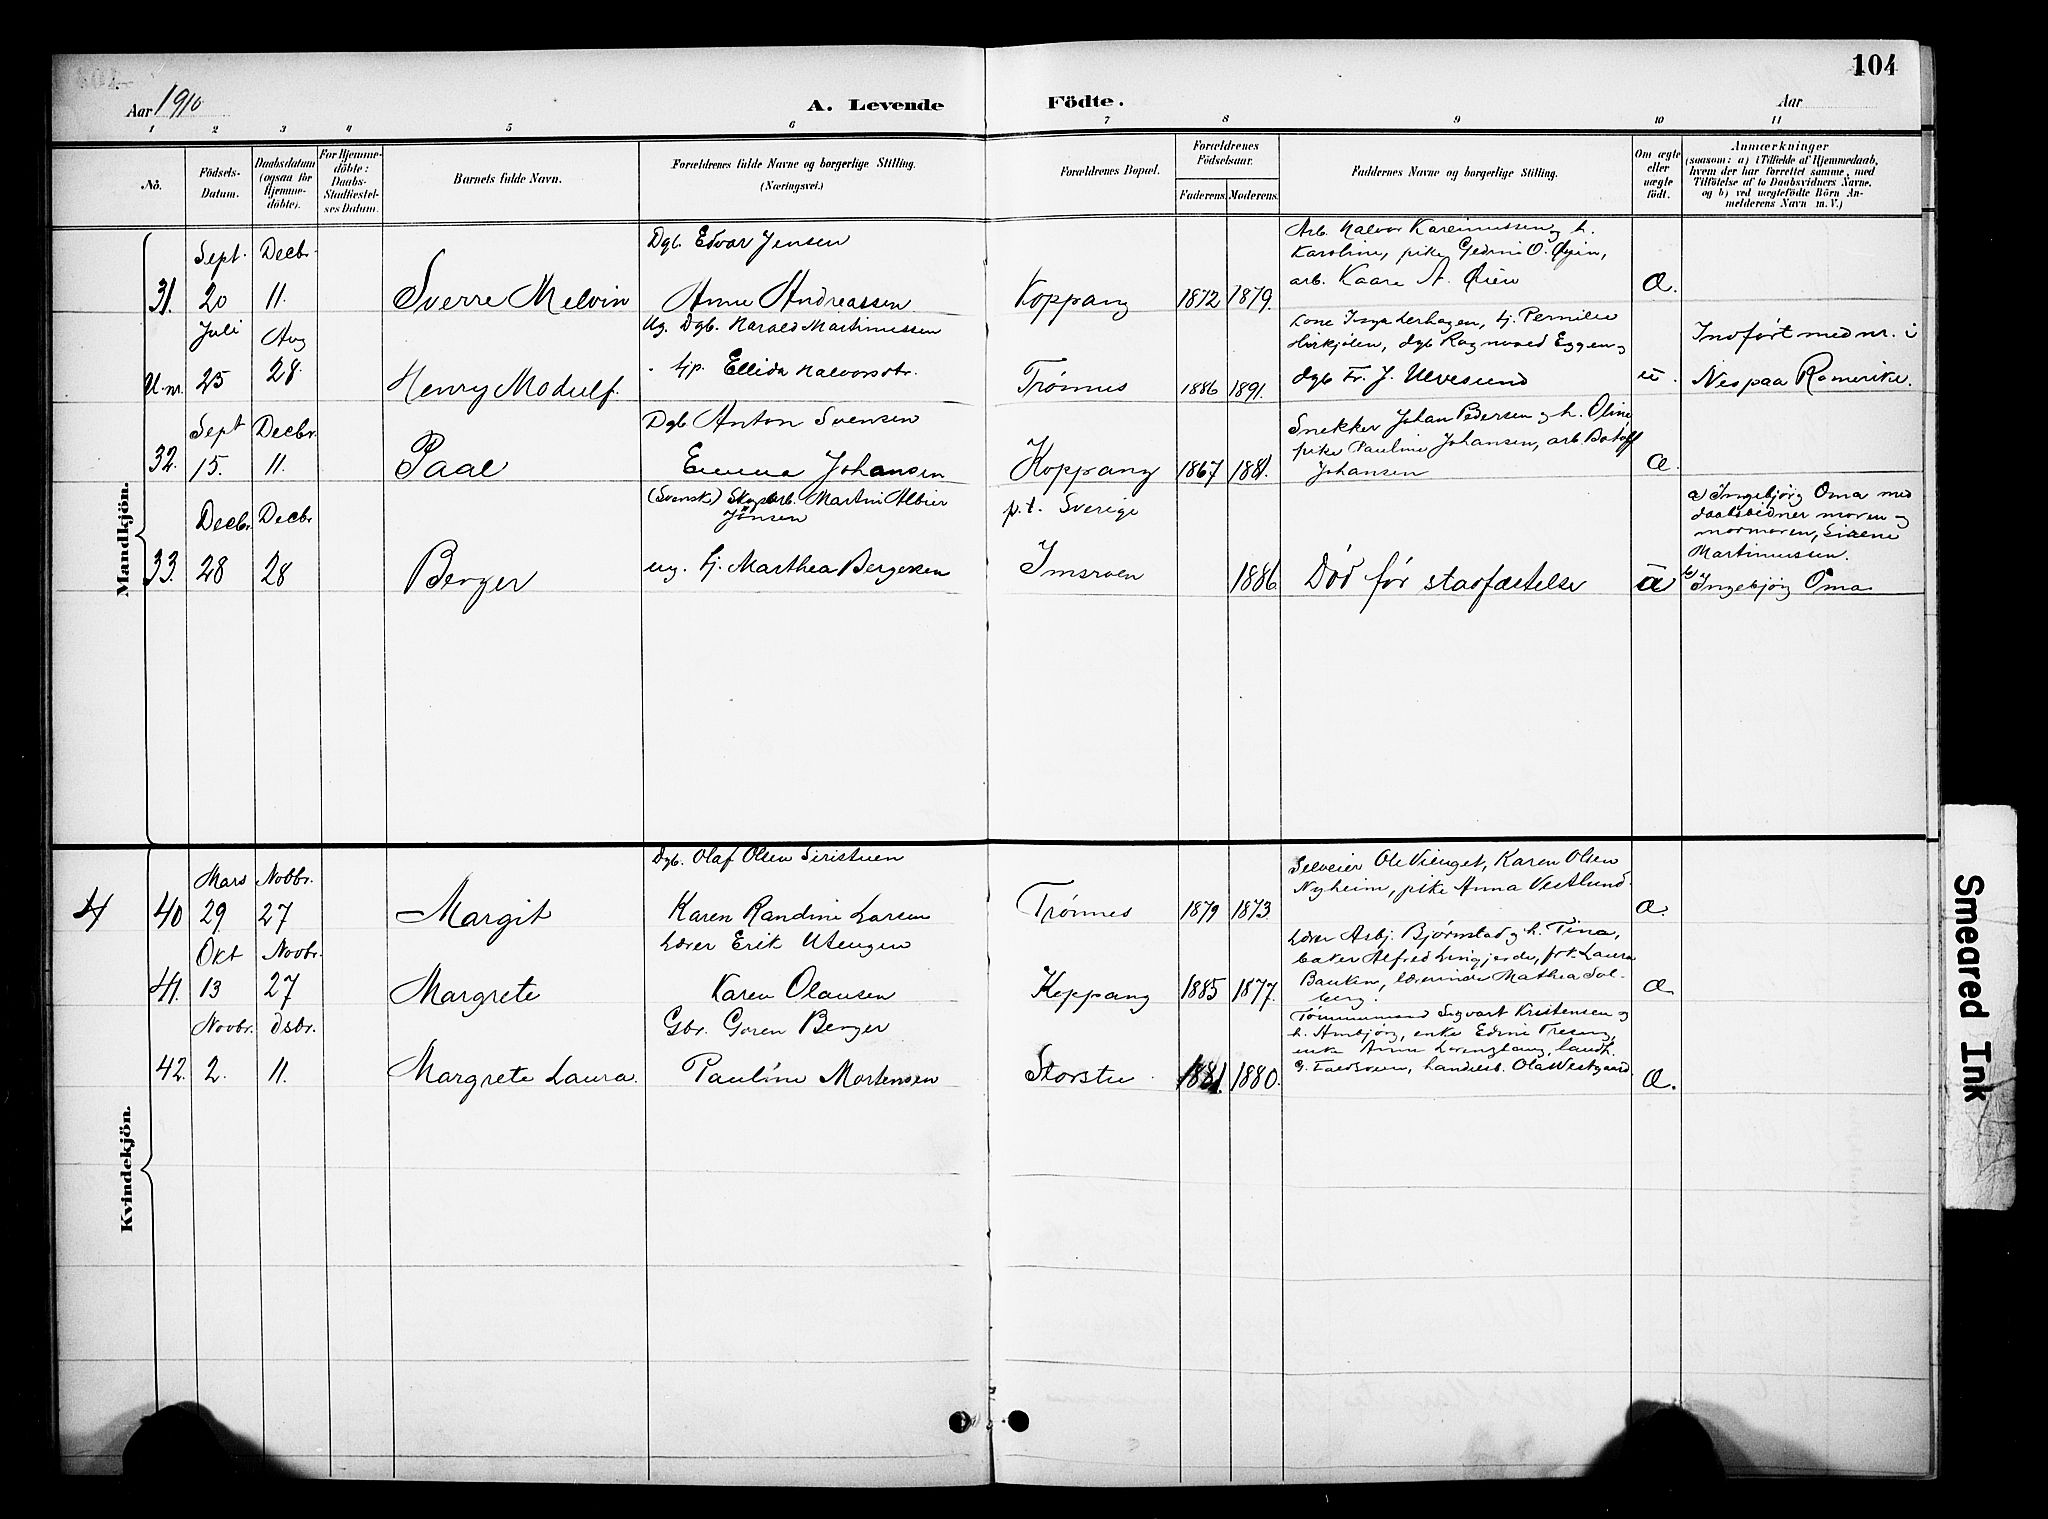 104
Aar 1910
A. Levende Födte.
Aar
1 2 3 4 5 6 7 8 9 10 11
No.
Födsels-Datum.
Daabsdatum (ogsaa för Hjemme-döbte).
For Hjemme-döbte: Daabs-Stadfæstel-ses Datum.
Barnets fulde Navn.
Forældrenes fulde Navne og borgerlige Stilling. (Næringsvei.)
Forældrenes Bopæl.
Forældrenes Födselsaar.
Faderens. Moderens.
Faddernes Navne og borgerlige Stilling.
Om ægte eller uægte födt.
Anmærkninger
(saasom: a) i Tilfælde af Hjemmedaab,
hvem der har forrettet samme, med
Tilföielse af to Daabsvidners Navne.
og b) ved uægtefödte Börn An-
melderens Navn m. V.)
Mandkjön.
31. Sept. 20 Decbr. 11. Sverre Melvin
Dgb. Edvar Jensen
Anne Andreassen
Koppang 1872 1879.
Arb. Halvor Karenussen og h.
Karoline, pike Gedini O. Øyin,
arb. Kaare A. Øien
Æ.
U.nr. Juli 25 Aug 28. Henry Modulf.
Ug. Dgb. Harald Martinussen
tjp. Ellida Halvorsdtr.
Trønnes 1886 1891.
tj. Pernilie
dgb Ragnvald Eggen og
dgb Fr. J. Ulvesund
u.
Indført med nr. i
Nes paa Romerike.
32. Sept 15. Decbr. 11. Paal
Dgb Anton Svensen
Emma Johansen
Koppang 1867 1881.
Snekker Johan Pedersen og h. Oline
pike Pauline Johansen, arb. Botolf
Johansen
Æ.
33. Decbr. 28 Decbr 28 Berger
(Svensk) Skogsarb. Martin Albier
Jönsen
ug. tj. Marthea Bergersen
p.t. Sverige
Imsroen 1886
Död før stadfæstelse
ü
a) Ingebjørg Oma med
daabsvidner moren og
mormoren,
Martinussen.
b) Ingebjørg Oma
Kvindekjön.
4 40 Mars 29 Novbr. 27 Margit
Dgb. Olaf Olsen Siristuen
Karen Randine Larsen
Trønnes 1879 1873.
Selveier Ole Vienget, Karen Olsen
Nyheim, pike Anna Vestlund.
Æ.
41. Okt 13 Novbr. 27 Margrete
Lærer Erik Utengen
Karen Olausen
Koppang 1885 1877.
Lærer Asbj. Bjørnstad og h. Tina,
baker Alfred Lingjerde, frk. Laura
Bauken, lærerinde Mathea Sol-
berg.
Æ
42. Novbr. 2. Dsbr. 11. Margrete Laura.
Gbr. Goren Berger
Pauline Mortensen
Storstu 1881. 1880.
Tømmermand Sigvart Kristensen og
h. Ambjørg, enke Edine Tresing,
enke landh.
landh. Ola Westgaard
Æ.
Smeared Ink